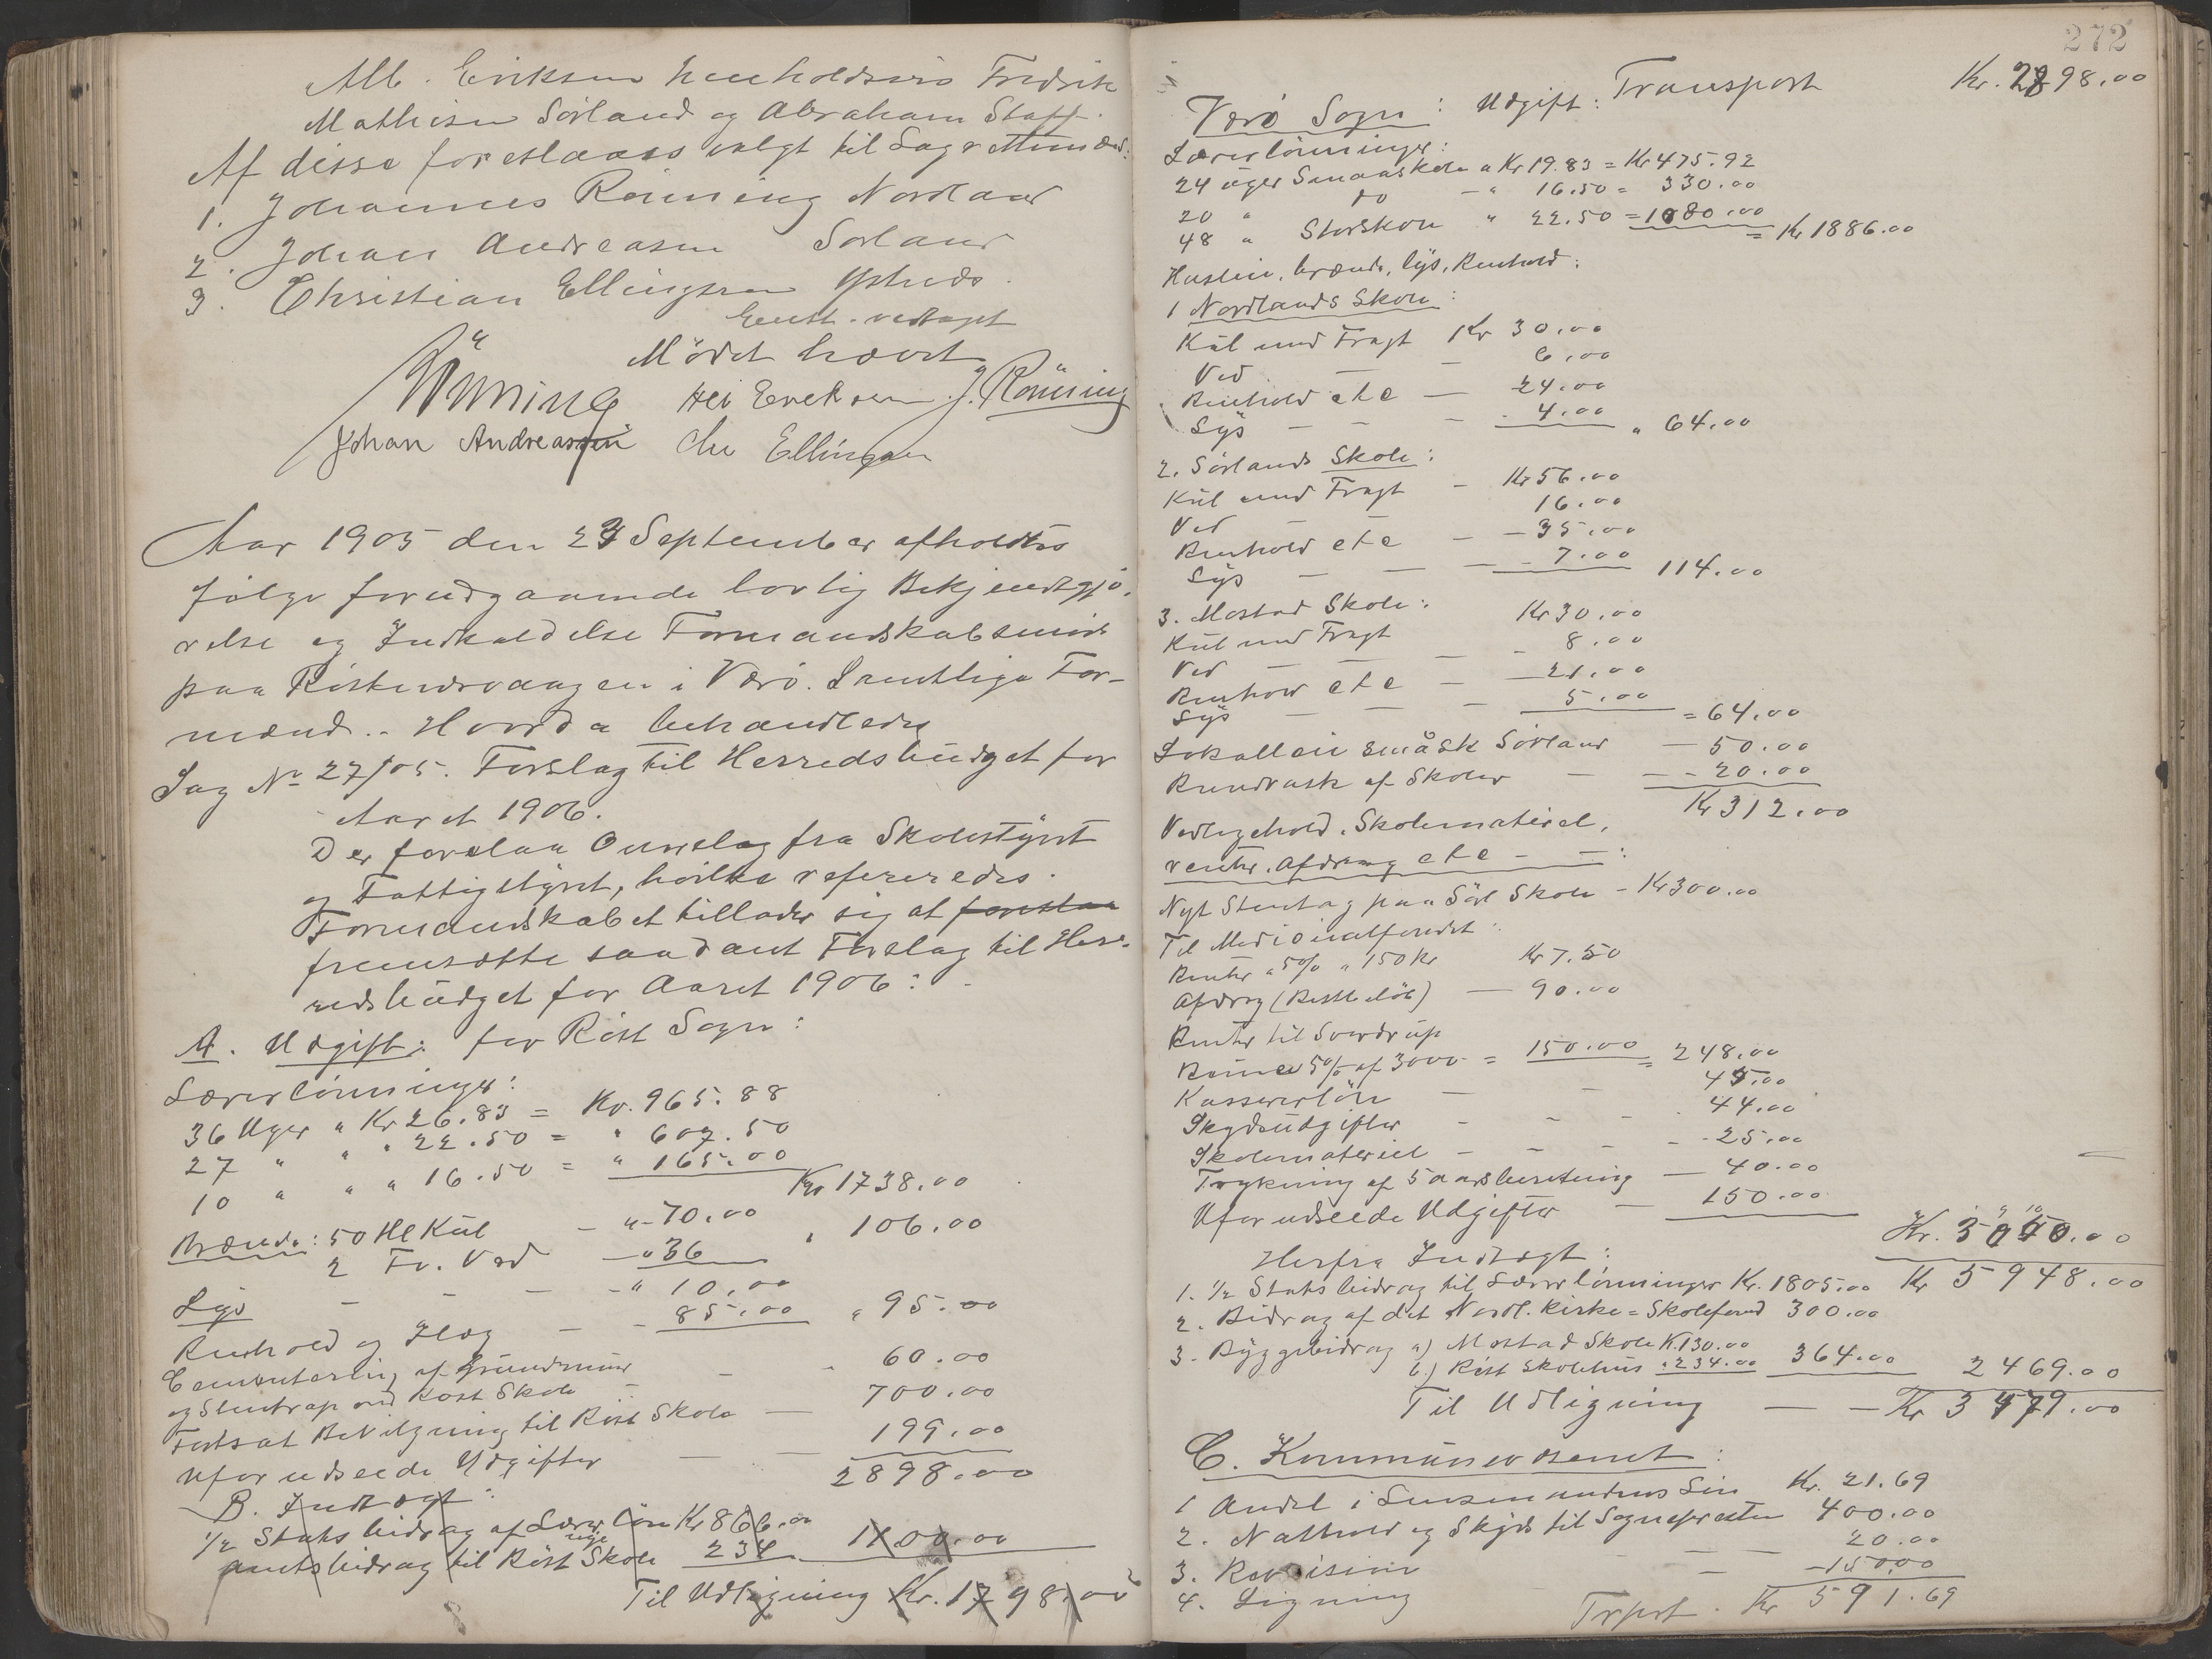 Alb. Eriksen henholdsvis Fredrik
Mathisen Sörland og Abraham Staff.
Af disse foreslaaes valgt til Lagrettemænd:
1. Johannes Rönning Nordland
2. Johan Andreasen Sørland
3. Christian Ellingsen Ystnes.
Enst. vedtaget
Mödet hævet
Rönning Alb Eriksen J. Rönning
Johan Andreassen Chr Ellingsen
Aar 1905 den 23 September afholdtes
följe forudgaaende lovlig Bekjendtgjö-
relse og Indkaldelse Formandskabsmöde
paa Röstnesvaagen i Värö. Samtlige For-
mænd.. Hvorda behandledes
Sag No 27/05. Forslag til Herredsbudget for
Aaret 1906.
Der forelaa Overslag fra Skolestyret
og Fattigstyret, hvilke refereredes.
Formandskabet tillader sig at foreslaa
fremsætte saadant Forslag til Her-
redsbudget for Aaret 1906:
A. Udgift: for Röst Sogn:
Lærerlönninger:
36 Uger a Kr 26.83 = Kr. 965.88
27 " " " 22.50 = " 607.50
10 " " " 16.50 = " 165.00
Kr 1738.00
Brænde: 50 Hl Kul - "-70.00
2 Fv. Ved -"36 " 106.00
Lys - - - -" 10.00
Renhold og Ilæg - - 85.00 " 95.00
Cementering af Grundmur
og Stentrap ved Röst Skole - - " 60.00
Fortsat Bevilgning til Röst Skole - 700.00
Uforudseede Udgifter - - 199.00
2898.00
B. Indtægt:
1/2 Statsbidrag af Lærerlön Kr 866.00
Amtsbidrag til Röst Skole 234 1100.00
Til Udligning Kr. 1798.00
272
Transport Kr. 2898.00
Værö Sogn: Udgift:
Lærerlönninger:
24 uger Smaaskole a Kr 19.83 = Kr 475.92
20 " do - " 16.50 = 330.00
48 " Storskole " 22.50 = 1080.00
= Kr 1886.00
Husleie, brænde, lys, Renhold:
1 Nordlands Skole:
Kul med Fragt Kr 30.00
Ved - - 6.00
Renhold etc - 24.00
Lys - - - 4.00 " 64.00
2. Sörlands Skole:
Kul med Fragt - Kr 56.00
Ved 16.00
Renhold etc - - 35.00
Lys - - - 7.00 114.00
3. Mostad Skole:
Kul med Fragt Kr 30.00
Ved - - - - 8.00
Renhold etc - - 21.00
Lys - - - 5.00 = 64.00
Lokalleie småsk Sörland - 50.00
Rundvask af Skoler - - - 20.00
Kr 312.00
Vedligehold, Skolemateriel,
renter, Afdrag etc - -:
Nyt Stentag paa Sörl Skole - Kr 300.00
Til Medicinalfondet:
Renter a 5% a 150 kr Kr 7.50
Afdrag (Restbelöb) - 90.00
Renter til Sverdrup
Rönne 5% af 3000 = 150.00 = 248.00
Kassererlön - - 45.00
Skydsudgifter - - - 44.00
Skolemateriel - - - - 25.00
Trykning af 5aarsberetning - 40.00
Uforudseede Udgifter - 150.00
Kr. 3050.00
Kr 5948.00
Herfra Indtægt:
1. 1/2 Statsbidrag til Lærerlönninger Kr. 1805.00
2. Bidrag af det Nordl. Kirke = Skolefond 300.00
3. Byggebidrag a) Mostad Skole K. 130.00
b) Röst Skolehus " 234.00 364.00 2469.00
Til Udligning - - Kr 3479.00
C. Kommunevæsenet:
1 Andel i Lensmandens Lön Kr. 21.69
2. Nathold og Skyds til Sognepresten 400.00
3. Revision - - 20.00
4. Ligning - - 150.00
Trpst. Kr 591.69